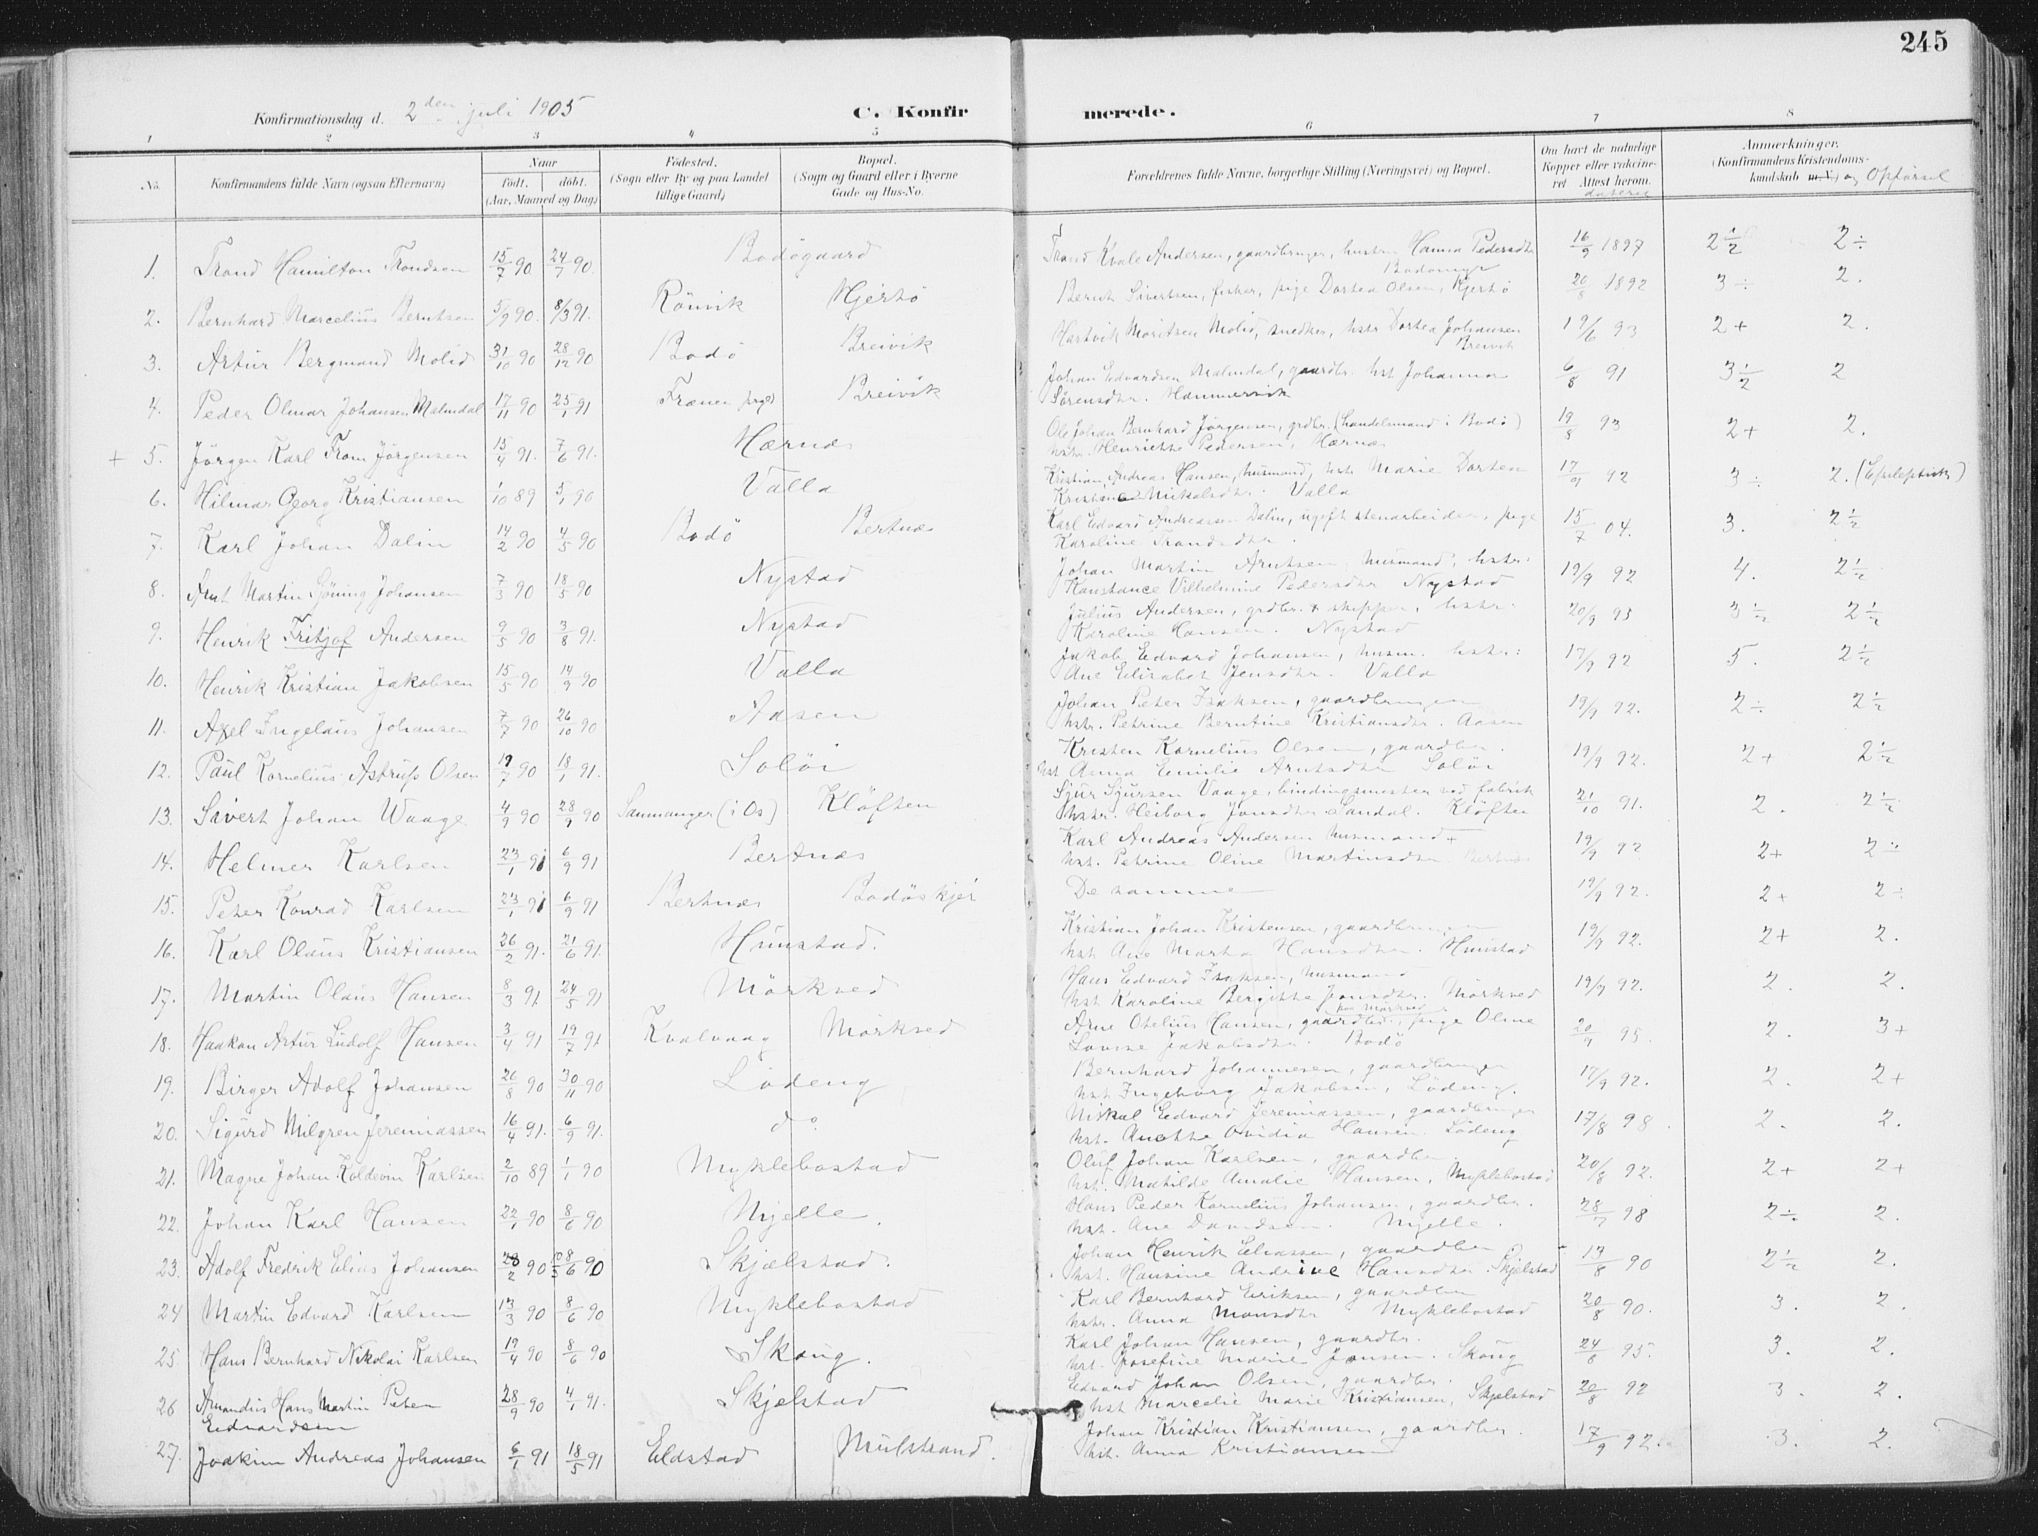 245
Konfirmationsdag d. 2den juli 1905
C. Konfirmerede.
1 2 3 4 5 6 7 8
No. Konfirmandens fulde Navn (ogsaa Efternavn) Naar født. døbt. (Aar, Maaned og Dag) Fødested. (Sogn eller By og paa Landet tillige Gaard) Bopæl. (Sogn og Gaard eller i Byerne Gade og Hus-No. Forældrenes fulde Navne, borgerlige Stilling (Næringsvei) og Bopæl. Om havt de naturlige Kopper eller vakcineret Attest herom. dateret Anmærkninger. (Konfirmandens Kristendomskundskab m. V.) og Opførsel
1. Trond Hamilton Trondsen 15/7 90 24/7 90 Bodøgaard Trond Kvale Andersen, gaardbruger, hustru Hanna Pedersdtr Bodømyr 16/9 1897 2½ 2÷
2. Bernhard Marcelius Berntsen 5/9 90. 8/3 91. Rønvik Hjertø Bernt Sivertsen, fisker, pige Dortea Olsen, Hjertø 20/8 1892 3÷ 2.
3. Artur Bergmand Molid 31/10 90 28/12 90 Bodø Breivik Hartvik Moritsen Molid, snedker, hstr Dortea Johansen Breivik 19/6 93 2+ 2.
4. Peder Olmar Johansen Malmdal 17/11 90 25/1 91 Frænen Breivik Johan Edvardsen Malmdal, gaardbr. hst Johanna Sørensdtr. Hammervik 6/8 91 3½ 2
+ 5. Jørgen Karl From Jørgensen 15/4 91. 7/6 91. Hærnæs Ole Johan Bernhard Jørgensen, grdbr. (handelsmand i Bodø) hstr. Henriette Pedersen, Hærnæs 19/8 93 2+ 2.
6. Hilmar Georg Kristiansen 1/10 89 5/1 90 Valla Kristian Andreas Hansen, husmand, hstr Marie Dortea Nikolsdtr. Valla 17/9 92 3÷ 2. (Epileptisk)
7. Karl Johan Dalin 14/2 90 4/5 90 Bodø Bertnæs Karl Edvard Andreassen Dalin, ugift stenarbeider, pige Karoline Trondsdtr. 15/7 04. 3. 2½
8. Arnt Martin Søning Johansen 7/3 90 18/5 90 Nystad Johan Martin Arntsen, husmand, hstr: Konstance Vilhelmine Pedersdtr Nystad 19/9 92 4. 2½
9. Henrik Fritjof Andersen 9/5 90 3/8 91. Nystad Julius Andersen, grdbr. + skipper, hstr: Karoline Hansen. Nystad 20/9 93 3½ 2½
10. Henrik Kristian Jakobsen 15/5 90 14/9 90 Valla Jakob Edvard Johansen, husm. hstr: Ane Elisabet Jensdtr. Valla 17/9 92 5. 2½
11. Axel Ingelaus Johansen 7/7 90 26/10 90 Aasen Johan Peter Isaksen, gaardbrugeren hstr. Petrine Berntine Kristiansdtr. Aasen 19/9 92. 2÷ 2½
12. Paul Kornelius Astrup Olsen 19/7 90 18/1 91. Soløi Kristen Kornelius Olsen, gaardbr. hst Anna Emilie Arntsdtr Soløi 19/9 92. 2+ 2½
13. Sivert Johan Waage 4/9 90 28/9 90 Sammanger (i Os) Kløften Sjur Sjursen Vaage, bindingsmester ved fabrik hstr. Heiborg Jonsdtr Sandal. Kløften 21/10 91. 2. 2½
14. Helmer Karlsen 23/1 91 6/9 91 Bertnæs Karl Andreas Andersen husmand + hst. Petrine Oline Martinsdtr. Bertnæs 19/9 92 2+ 2÷
15. Peter Konrad Karlsen 23/1 91 6/9 91 Bertnæs Bodøskjer De samme 19/9 92. 2+ 2÷
16. Karl Olaus Kristiansen 26/2 91. 21/6 91. Hunstad. Kristian Johan Kristensen, gaardbrugeren hst Ane Marta Hansdtr. Hunstad 19/9 92. 2+ 2.
17. Martin Olaus Hansen 8/3 91. 24/5 91 Mørkved Hans Edvard Isaksen, husmand hst Karoline Bergitte Jonsdtr. Mørkved 19/9 92. 2. 2.
18. Haakon Artur Ludolf Hansen 3/4 91 19/7 91 Kvalvaag Mørkved Arne Otelius Hansen, gaardbr. paa Mørkved, pige Oline Lovise Jakobsdtr. Bodø 20/9 95. 2. 3+
19. Birger Adolf Johansen 26/8 90 30/11 90 Løding Bernhard Johannesen, gaardbruger hst Ingeborg Jakobsen, Løding. 17/9 92. 2. 2+
20. Sigurd Milgren Jeremiassen 16/4 91. 6/9 91. do Niskal Edvard Jeremiassen, gaardbruger hst. Anette Ovidia Hansen. Løding 17/8 98. 2. 2.
21. Magne Johan Koldevin Karlsen 2/10 89 1/1 90 Myklebostad Oluf Johan Karlsen, gaardbr. hst. Matilde Amalie Hansen, Myklebostad 20/8 92. 2+ 2+
22. Johan Karl Hansen 22/1 90 8/6 90 Mjelle. Hans Peder Kornelius Johansen, gaardbr. hst. Ane Davidsen. Mjelle. 28/7 98 2÷. 2.
23. Adolf Fredrik Elias Johansen 28/2 90 8/6 90 Skjælstad. Johan Henrik Eliassen, gaardbr hst. Hansine Andrine Hansdtr. Skjelstad 13/8 90 2½ 2.
24 Martin Edvard Karlsen 13/3 90 8/6 90 Myklebostad Karl Bernhard Eriksen, gaardbr hstr. Anna Monsdtr Myklebostad 20/8 90. 3. 2.
25. Hans Bernhard Nikolai Karlsen 19/4 90 8/6 90 Skoug. Karl Johan Hansen, gaardbr. hst. Josefine Marie Jonsen. Skoug 24/8 95. 3. 2.
26 Amandus Hans Martin Peter Edvardsen 28/9 90 4/1 91. Skjelstad Edvard Johan Olsen, gaardbr. hst Marcelie Marie Kristiansen, Skjælstad 20/8 92 3. 2.
27. Joakim Andreas Johansen 6/1 91 18/5 91 Eldstad Mulstrand. Johan Kristian Kristiansen, gaardbr. hst. Anna Kristiansen 17/9 92. 3. 2.